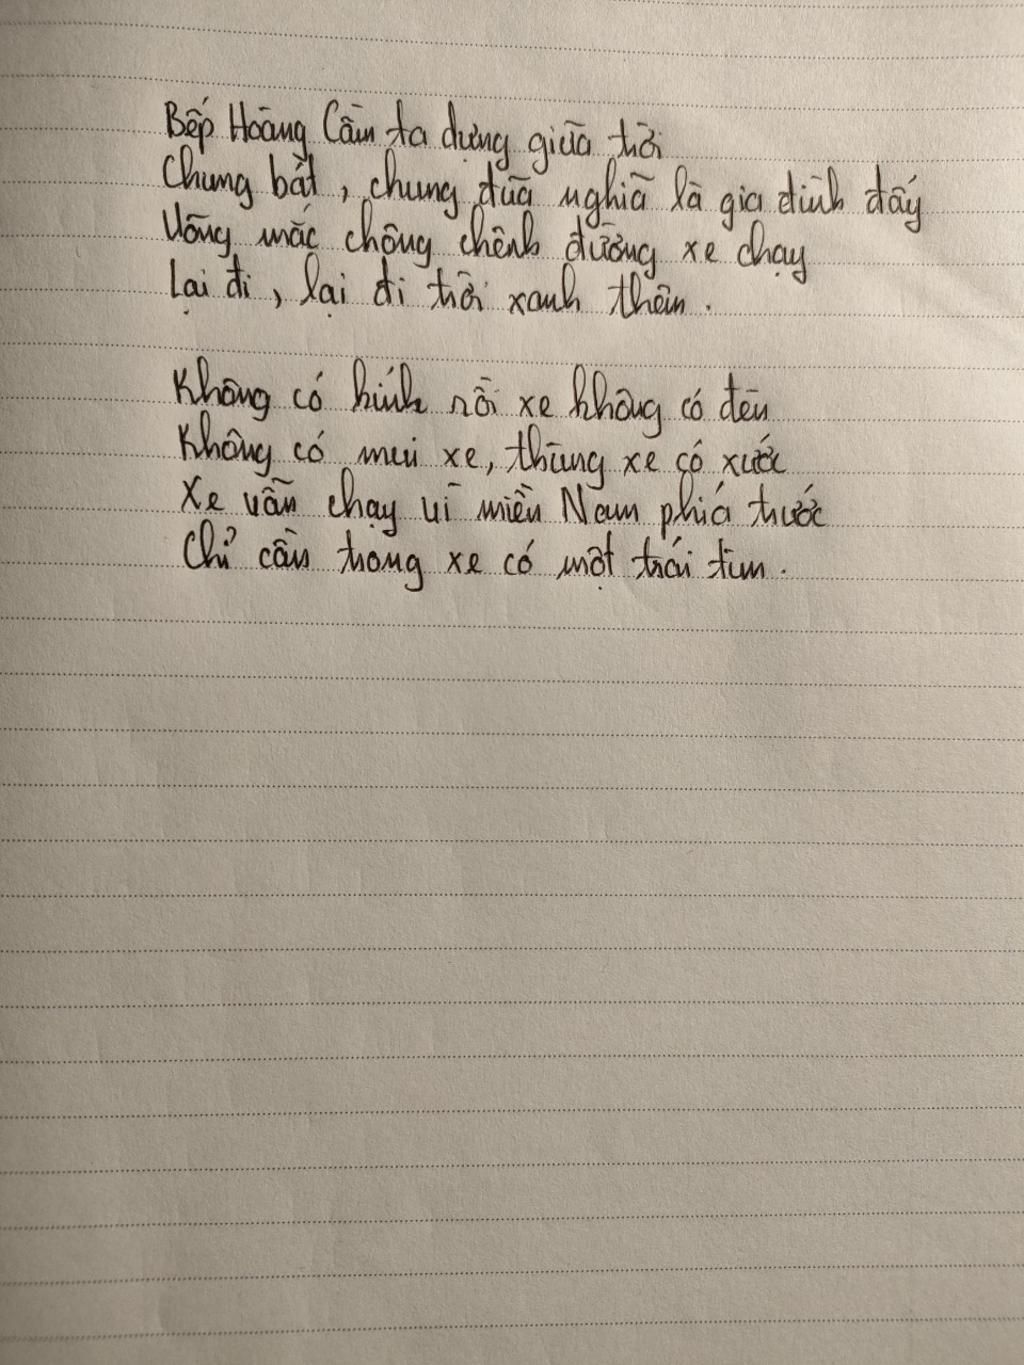 Bếp Hoàng Cầm ta dựng giữa trời
Chung bát, chung đũa nghĩa là gia đình đấy
Võng mắc chông chênh đường xe chạy
Lại đi, lại đi trời xanh thêm.
Không có kính rồi xe không có đèn
Không có mui xe, thùng xe có xước
Xe vẫn chạy vì miền Nam phía trước
Chỉ cần trong xe có một trái tim.